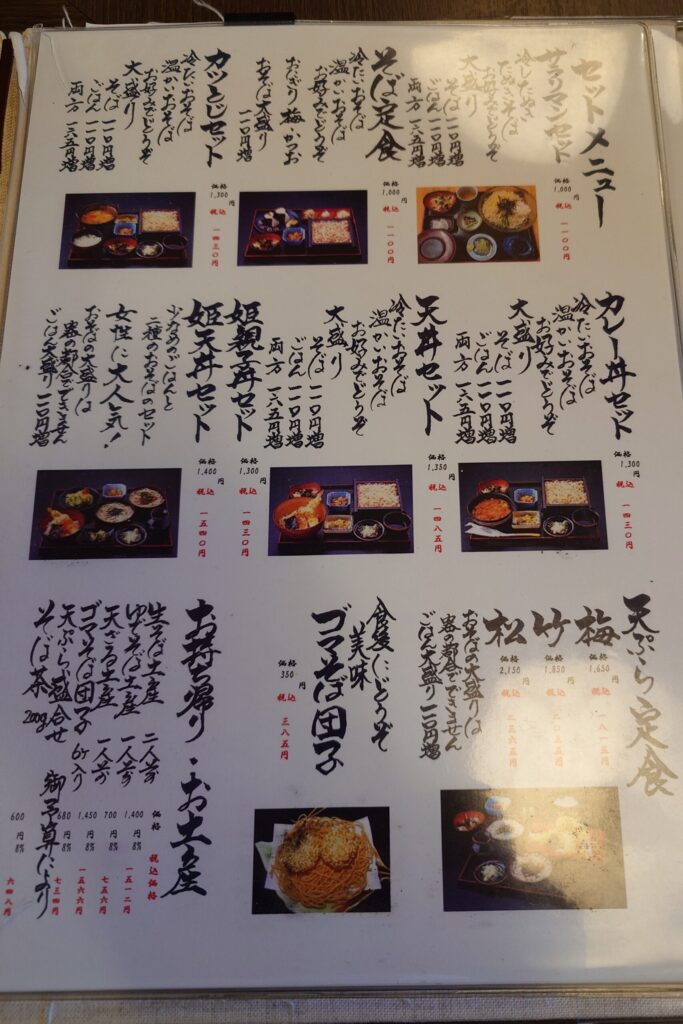 セットメニュー
サラリマンセット
冷したぬき
たぬきそば
お好みでどうぞ
大盛り
そば 一一〇円増
ごはん 一一〇円増
両方 一六五円増
価格
1,000円
税込
一一〇〇円
そば定食
冷たいおそば
温かいおそば
お好みでどうぞ
おにぎり 梅・かつお
おそば大盛り
一一〇円増
価格
1,000円
税込
一一〇〇円
カツとじセット
冷たいおそば
温かいおそば
お好みでどうぞ
大盛り
そば 一一〇円増
ごはん 一一〇円増
両方 一六五円増
価格
1,300円
税込
一四三〇円
カレー丼セット
冷たいおそば
温かいおそば
お好みでどうぞ
大盛り
そば 一一〇円増
ごはん 一一〇円増
両方 一六五円増
価格
1,300円
税込
一四三〇円
天丼セット
冷たいおそば
温かいおそば
お好みでどうぞ
大盛り
そば 一一〇円増
ごはん 一一〇円増
両方 一六五円増
価格
1,350円
税込
一四八五円
姫親子丼セット
価格
1,300円
税込
一四三〇円
姫天丼セット
価格
1,400円
税込
一五四〇円
少なめのごはんと
二種のおそばのセット
女性に大人気!
おそばの大盛りは
器の都合でできません
ごはん大盛り 一一〇円増
天ぷら定食
梅
価格
1,650円
税込
一八一五円
竹
価格
1,850円
税込
二〇三五円
松
価格
2,150円
税込
二三六五円
おそばの大盛りは
器の都合でできません
ごはん大盛り 一一〇円増
食後にどうぞ
美味
ゴマそば団子
価格
350円
税込
三八五円
お持ち帰り・お土産
価格
税込価格
生そば土産 二人前
1,400円 8%
一五一二円
ゆでそば土産 一人前
700円 8%
七五六円
天ざる土産 一人前
1,450円 8%
一五六六円
ゴマそば団子 6ケ入り
680円 8%
七三四円
天ぷら盛合せ 御予算により
そば茶 200g
600円 8%
六四八円